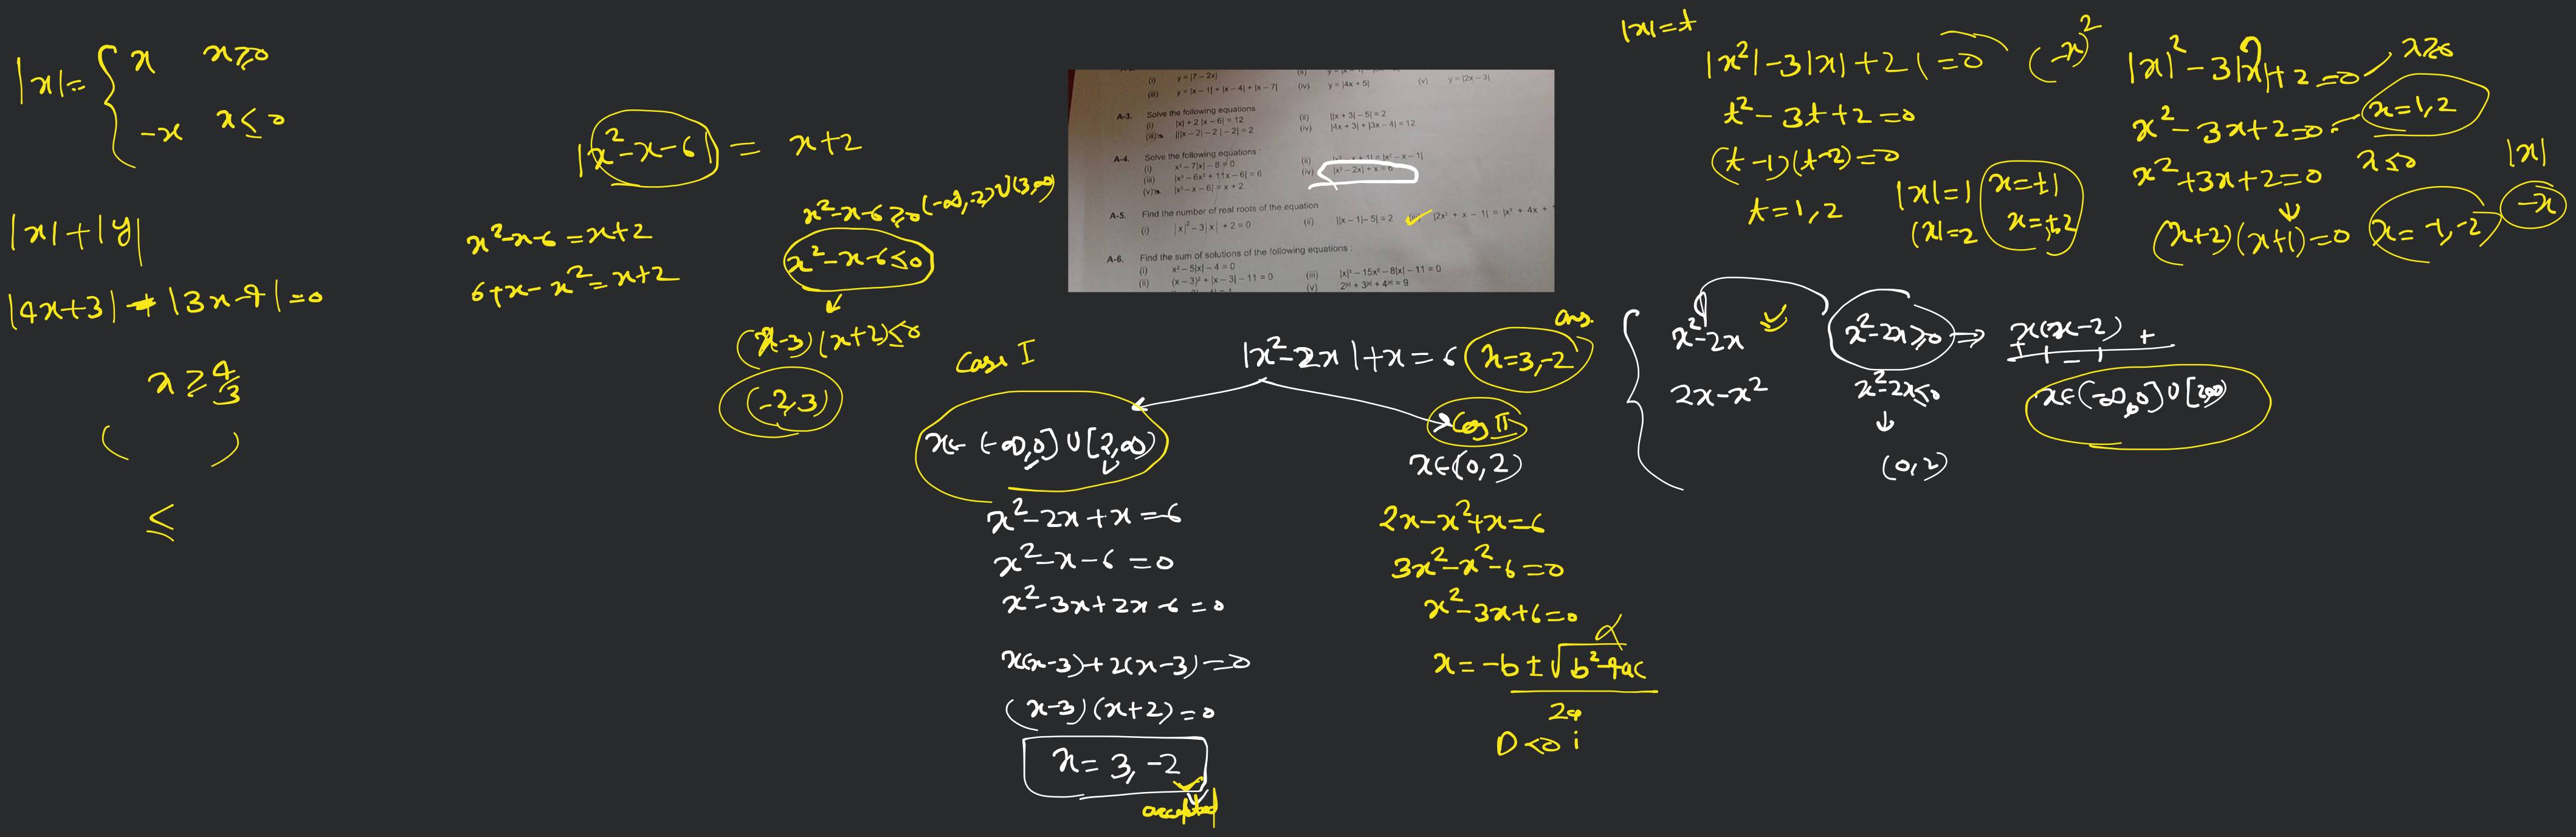 |x| = { x x≥0
-x x≤0
|x|+|y|
|4x+3| + |3x-4| = 0
x ≥ 4/3
( )
≤
|x²-x-6| = x+2
x²-x-6 = x+2
6+x-x² = x+2
x²-x-6≥0 (-∞,-2)∪(3,∞)
x²-x-6≤0
(x-3)(x+2)≤0
(-2,3)
(i) y = |7 – 2x|
(iii) y = |x – 1| + |x – 4| + |x – 7| (iv) y = |4x + 5| (v) y = |2x – 3|
A-3. Solve the following equations
(i) |x| + 2 |x – 6| = 12 (ii) ||x + 3| – 5| = 2
(iii) |||x – 2| – 2 | – 2| = 2 (iv) |4x + 3| + |3x – 4| = 12
A-4. Solve the following equations :
(i) x² – 7|x| – 8 = 0 (ii) – x – 1|
(iii) |x³ – 6x² + 11x – 6| = 6 (iv) |x² – 2x| + x = 6
(v) |x² – x – 6| = x + 2
A-5. Find the number of real roots of the equation
(i) |x|² – 3|x| + 2 = 0 (ii) ||x – 1| – 5| = 2 |2x² + x – 1| = |x² + 4x +
A-6. Find the sum of solutions of the following equations :
(i) x² – 5|x| – 4 = 0
(ii) (x – 3)² + |x – 3| – 11 = 0 (iii) |x|³ – 15x² – 8|x| – 11 = 0
(v)
Case I
|x²-2x|+x = 6 x = 3,-2 ans.
x∈ (-∞,0]∪[2,∞)
x²-2x+x = 6
x²-x-6 = 0
x²-3x+2x-6 = 0
x(x-3)+2(x-3) = 0
(x-3)(x+2) = 0
x = 3, -2
accepted
Case II
x∈(0,2)
2x-x²+x = 6
3x²-x²-6 = 0
x²-3x+6 = 0
x = -b ± √b²-4ac
2a
D<0 i
|x| = t
|x²|-3|x|+2| = 0
t²-3t+2 = 0
(t-1)(t-2) = 0
t = 1, 2
|x|=1 x = ±1
|x|=2 x = ±2
(-x)²
|x|²-3|x|+2 = 0 x≥0
x²-3x+2 = 0 x = 1,2
x²+3x+2 = 0 x≤0
(x+2)(x+1) = 0 x = -1,-2
|x|
-x
x²-2x x²-2x≥0 ⇒ x(x-2)
+ - +
2x-x² x²-2x≤0 x∈(-∞,0]∪[2,∞)
(0,2)